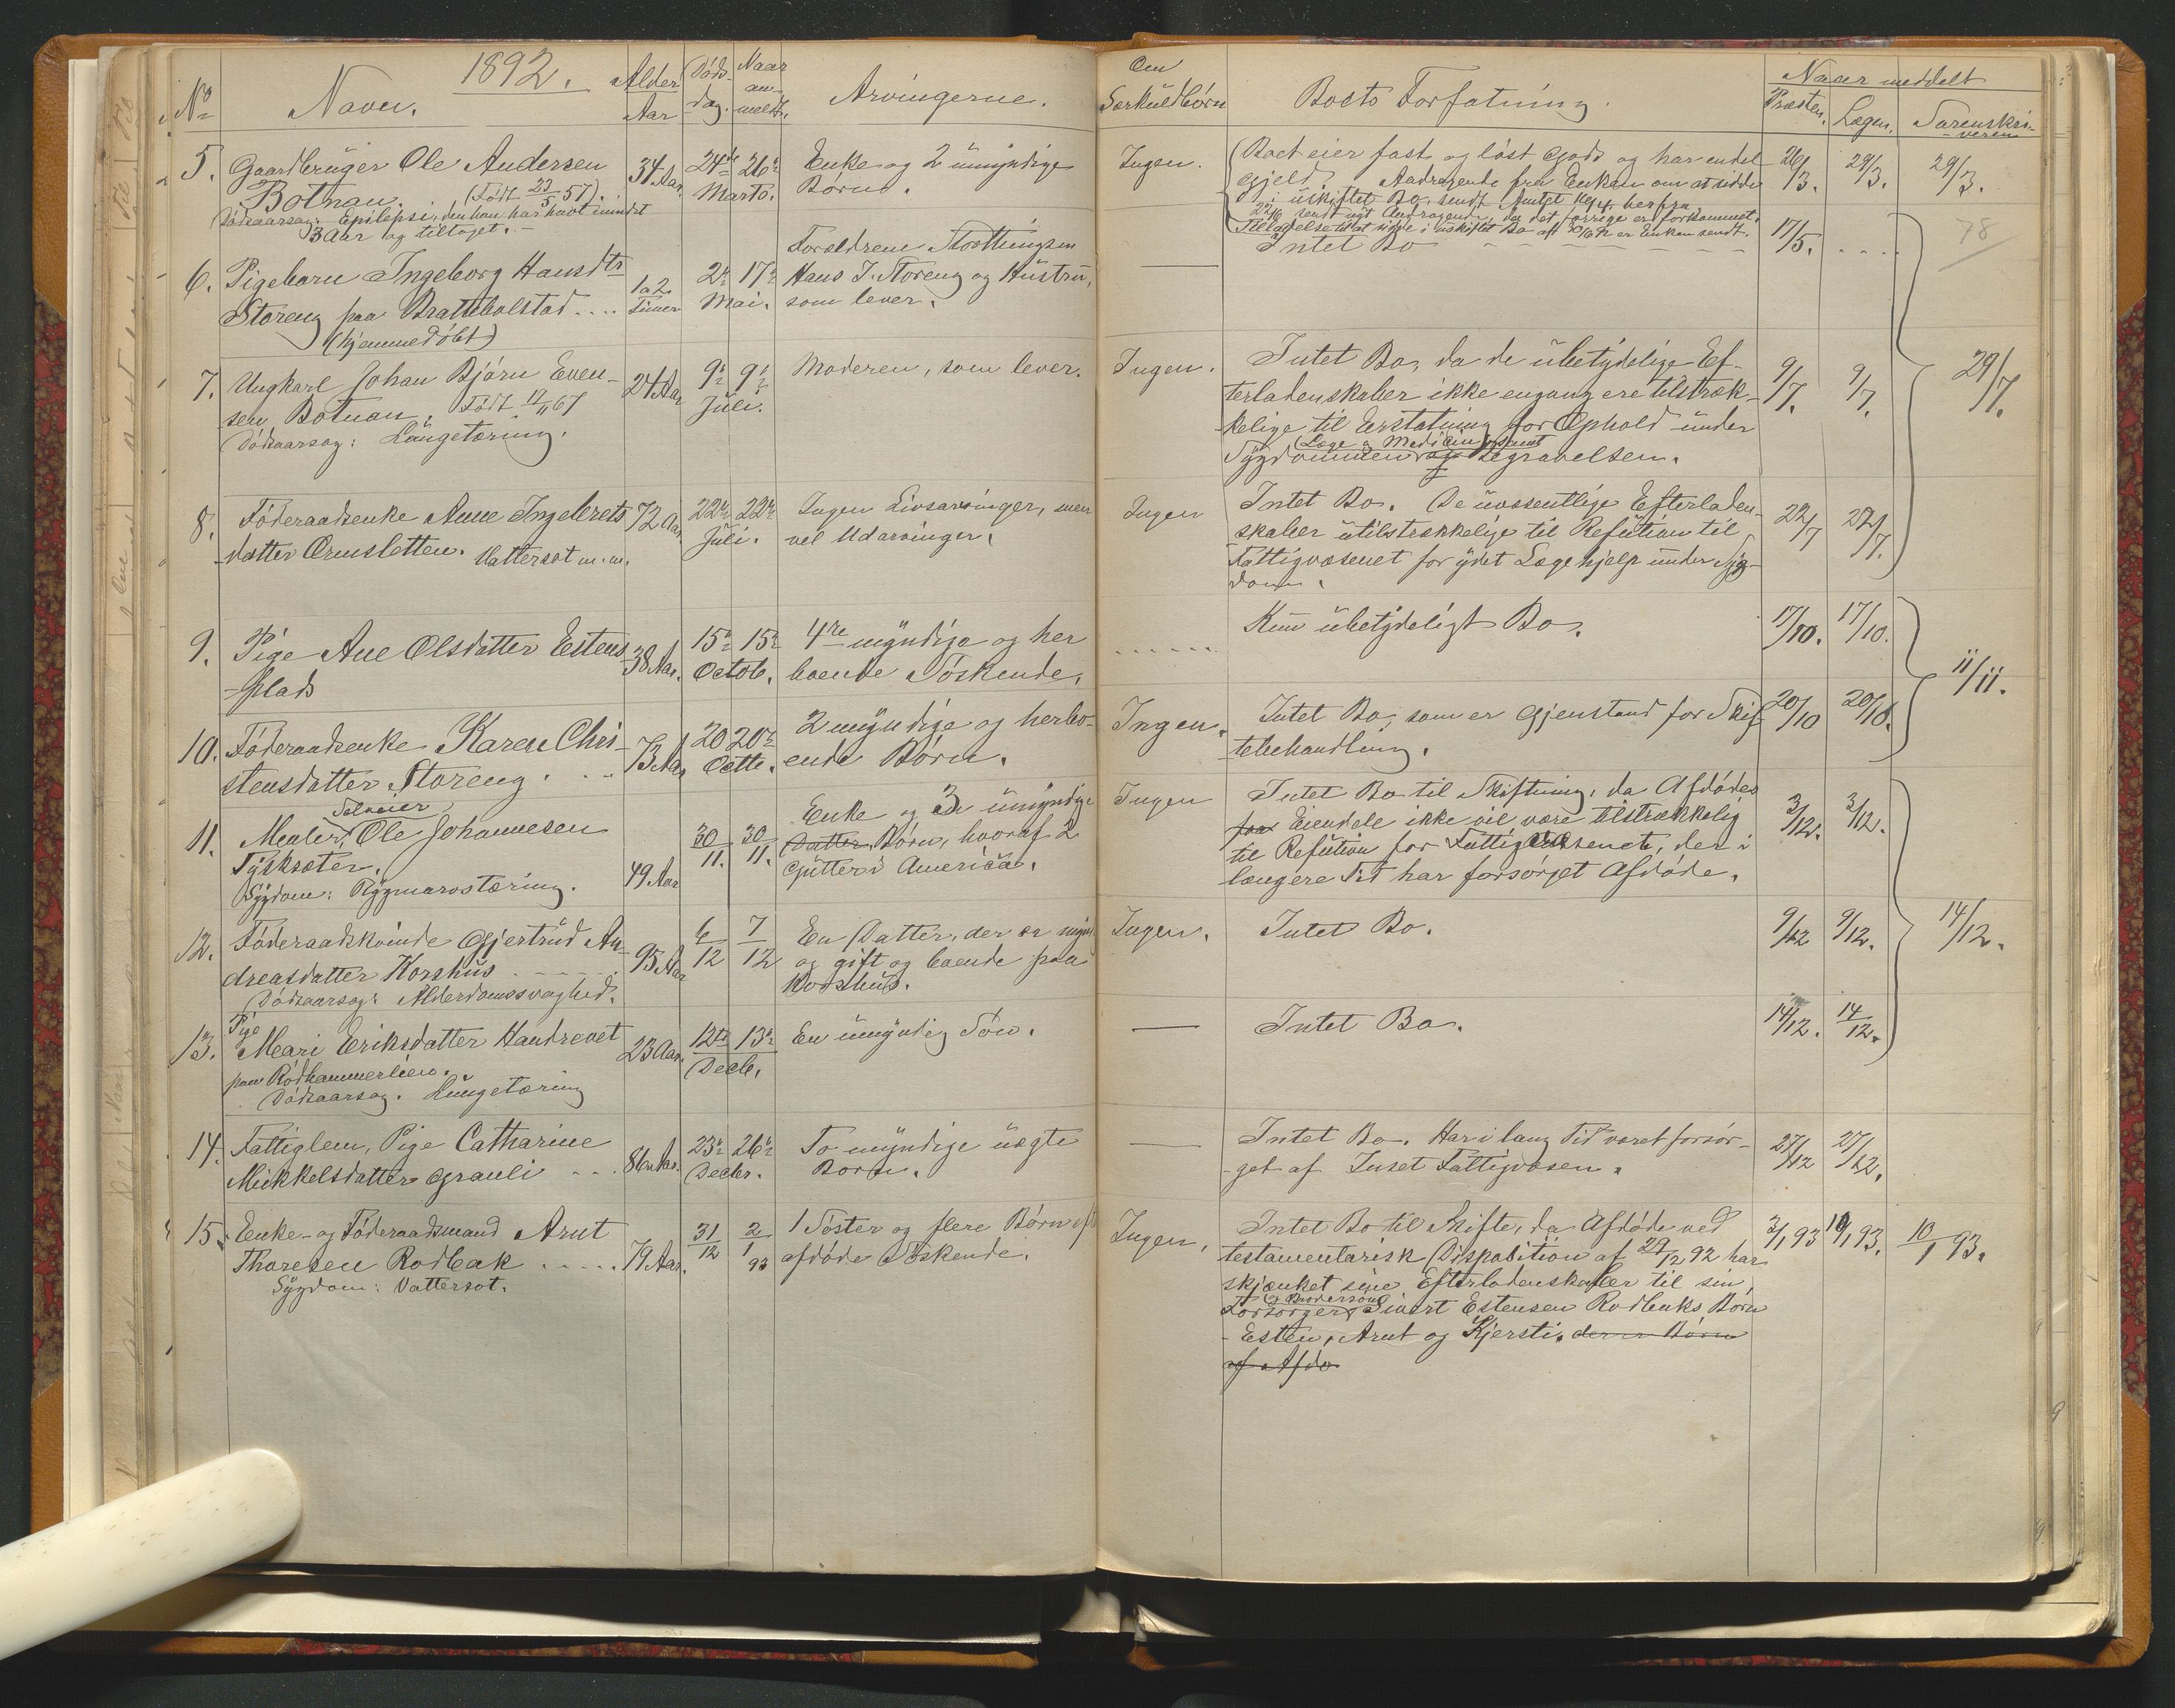 1892.
No
Navn.
Alder
Aar
Døds-
dag.
Naar
an-
meldt.
Arvingerne.
5. Gaardbruger Ole Andersen
Botnan. (Født 23/5 57).
Dødsaarsag: Epilepsi, den han har havt mindst
3 Aar og tiltaget.
34 Aar.
24de 26de
Marts.
Enke og 2 umyndige
Børn.
6. Pigebarn Ingeborg Hansdtr
Storeng paa Brattebolstad ....
(hjemmedøbt)
1 a 2
Timer
2de 17de
Mai.
Forældrene Storthingsm
Hans J. Storeng og Hustru,
som lever.
7. Ungkarl Johan Bjørn Even-
sen Botnan. Født 17/11 67
Dødsaarsag: Lungetæring.
24 Aar
9de 9de
Juli.
Moderen, som lever.
8. Føderaadsenke Anne Ingebrets
datter Ormsletten. Vattersot m.m.
72 Aar
22de 22de
Juli.
Ingen Livsarvinger, men
vel Udarvinger.
9. Pige Ane Olsdatter Estens-
plads
38 Aar.
15de 15de
Octob.
4re myndige og her
boende Søskende.
10. Føderaadsenke Karen Chri-
stensdatter Storeng. ...
73 Aar
20 20de
Octb.
2 myndige og herbo-
ende Børn.
11. Selveier
Meuler, Ole Johannesen
Tyskseter.
Sygdom: Rygmarvstæring.
49 Aar
30/11. 30/11.
Enke og 3 umyndige
Datter Børn, hvoraf 2
Gutter i America.
12. Føderaadskvinde Gjertrud An-
dreasdatter Korshus .......
Dødsaarsag: Alderdomssvaghed.
95 Aar
6/12 7/12
En Datter, der er mynd.
og gift og boende paa
Korshus.
13. Pige
Mari Eriksdatter Haudrevet
paa Rødhammerlien.
Dødsaarsag. Lungetæring
23 Aar.
12te 13de
Decb.
En umyndig Søn.
14. Fattiglem, Pige Catharine
Mikkelsdatter Grauli ...
86 Aar.
23de 26de
Decbr.
To myndige uægte
Born.
15. Enke- og Føderaadsmand Arnt
Thoresen Rodbak .....
Sygdom: Vattersot.
79 Aar.
31/12 2/1 93
1 Søster og flere Børn af
afdøde Søskende.
Om
Særkuldbørn
Boets Forfatning.
Naar meddelt
Præsten. Lægen. Sorenskri-
veren
Ingen.
Boet eier fast og løst Gods og har endel
Gjeld. Andragende fra Enken om at sidde
i uskiftet Bo, sendt Amtet herfra
sendt nyt Andragende, da det forrige er forkommet.
Tilladelse til at sidde i uskiftet Bo er Enken sendt.
26/3. 29/3. 29/3.
78
Intet Bo - - - - - - -
17/5. ....
Ingen.
Intet Bo, da de ubetydelige Ef-
terladenskaber ikke engang ere tilstræk-
kelige til Erstatning for Ophold under
(Læge og Medicin) samt
Sygdommen og Begravelsen.
9/7. 9/7.
29/7.
Ingen
Intet Bo. De uvæsentlige Efterladen-
skaber utilstrækkelige til Refution til
Fattigvæsenet for ydet Lægehjelp under Syg-
dom.
22/7 22/7.
......
Kun ubetydeligt Bo.
17/10. 17/10.
11/11.
Ingen.
Intet Bo, som er Gjenstand for Skif-
tebehandling.
20/10 20/10.
Ingen
Intet Bo til Skiftning, da Afdødes
faa Eiendele ikke vil være tilstrækkelig
til Refution for Fattigvæsenet, der i
længere Tid har forsørget Afdøde.
3/12. 3/12.
14/12.
Ingen.
Intet Bo.
9/12 9/12.
Intet Bo.
14/12. 14/12.
Intet Bo. Har i lang Tid været forsør-
get af Inset Fattigvæsen.
27/12 27/12.
Ingen,
Intet Bo til Skifte, da Afdøde ved
testamentarisk Disposition af 29/12 92 har
skjænket sine Efterladenskaber til sin
og Brodersøn
Forsørger, Sivert Estensen Rodbaks Børn
Esten, Arnt og Kjersti. der er Børn
af Afdø
3/1 93 10/1 93. 10/1 93.